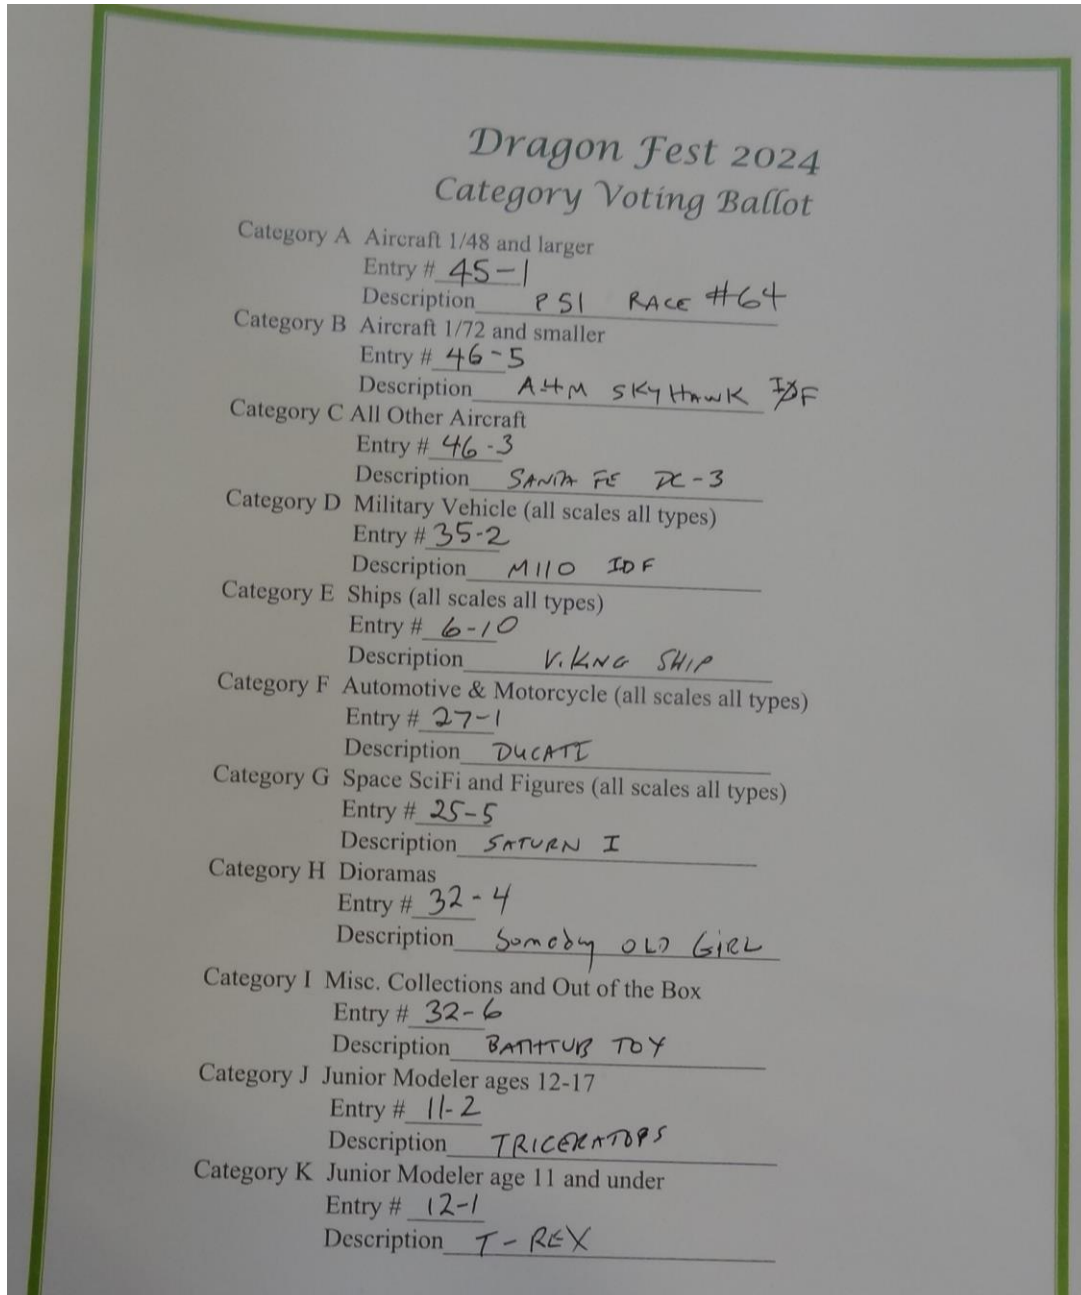 Dragon Fest 2024
Category Voting Ballot
Category A Aircraft 1/48 and larger
Entry # 45-1
Description PSI RACE #64
Category B Aircraft 1/72 and smaller
Entry # 46-5
Description A4M SKYHAWK IDF
Category C All Other Aircraft
Entry # 46-3
Description SANTA FE DC-3
Category D Military Vehicle (all scales all types)
Entry # 35-2
Description M110 IDF
Category E Ships (all scales all types)
Entry # 6-10
Description VIKNG SHIP
Category F Automotive & Motorcycle (all scales all types)
Entry # 27-1
Description DUCATI
Category G Space SciFi and Figures (all scales all types)
Entry # 25-5
Description SATURN I
Category H Dioramas
Entry # 32-4
Description OLD GIRL
Category I Misc. Collections and Out of the Box
Entry # 32-6
Description BATHTUB TOY
Category J Junior Modeler ages 12-17
Entry # 11-2
Description TRICERATOPS
Category K Junior Modeler age 11 and under
Entry # 12-1
Description T-REX